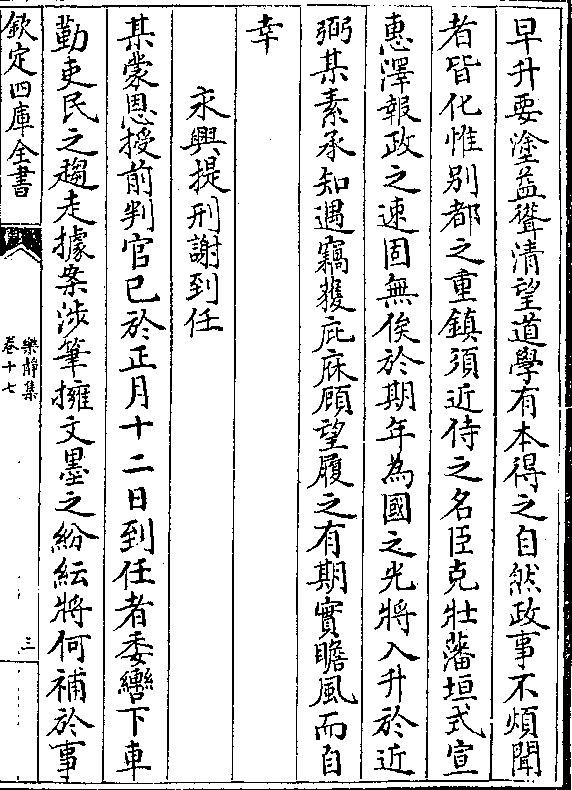 早升要塗益聳清望道學有本得之自然政事不煩聞
者皆化惟别都之重鎮須近侍之名臣克壯藩垣式宣
惠澤報政之速固無俟於期年為國之光將入升於近
弼某素承知遇竊獲庇庥顧望履之有期實瞻風而自
幸
永興提刑謝到任
某蒙恩授前判官已於正月十二日到任者委轡下車
勤吏民之趨走據案涉筆擁文墨之紛紜將何補於事
欽定四庫全書
樂静集
卷十七
三